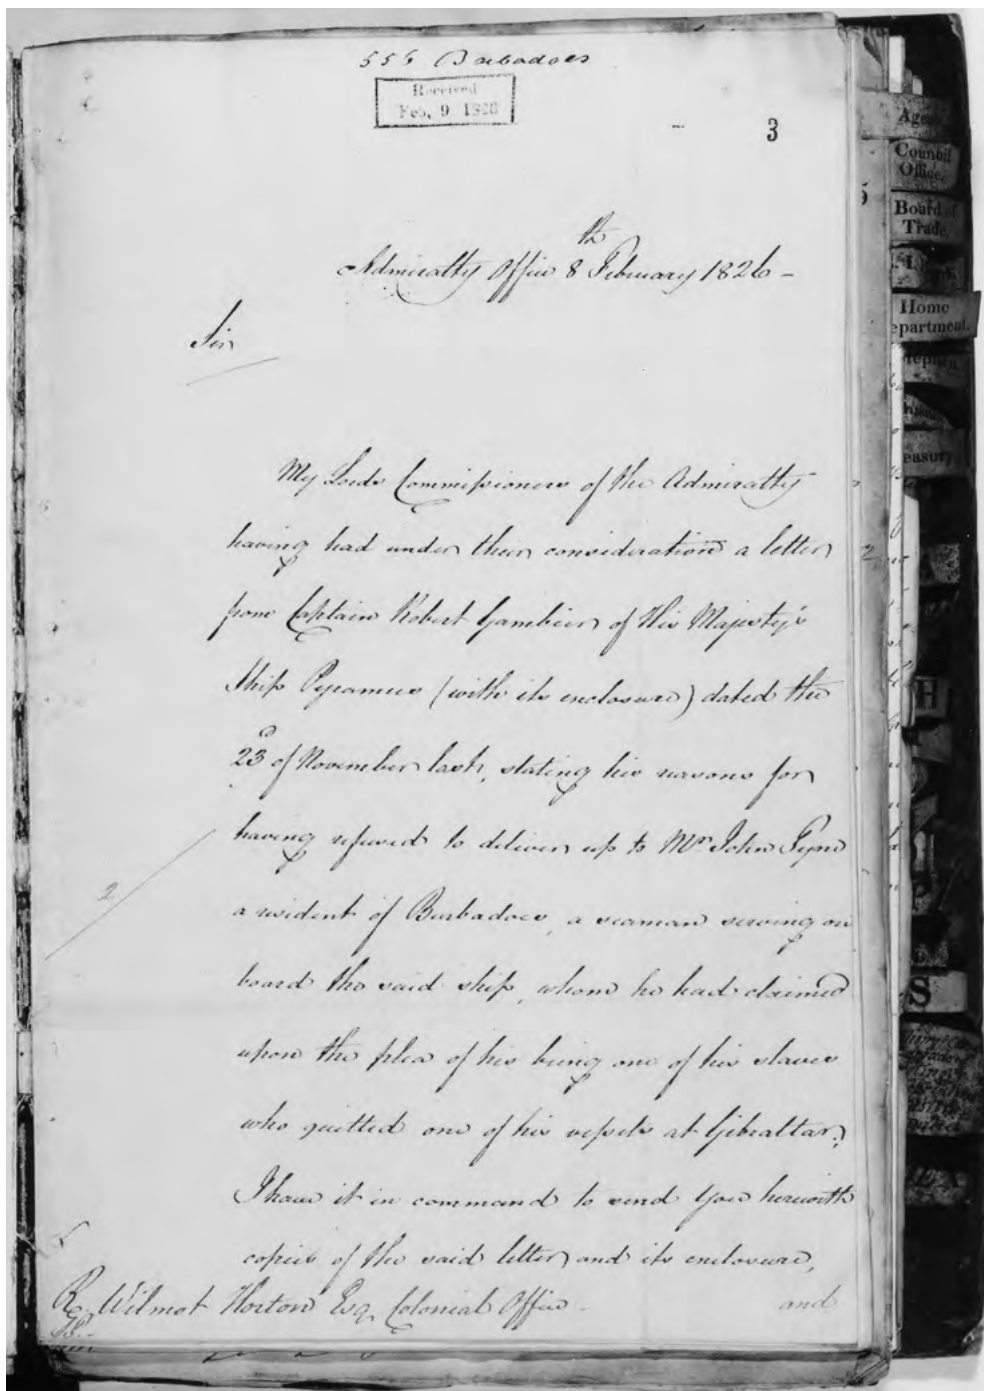 556 Barbadoes
Received
Feb. 9 1826
3
Admiralty Office 8th February 1826 -
Sir
My Lords Commissioners of the Admiralty
having had under their consideration a letter
from Captain Robert Gambier of His Majesty's
Ship Pyramus (with its enclosure) dated the
23d of November last, stating his reasons for
having refused to deliver up to Mr John Pyne
a resident of Barbadoes, a seaman serving on
board the said ship, whom he had claimed
upon the plea of his being one of his slaves
who quitted one of his vessels at Gibraltar;
I have it in command to send you herewith
copies of the said letter and its enclosure,
and
R. Wilmot Horton Esq. Colonial Office -
2
Council
Office
Board of
Trade
Home
Department
H
S